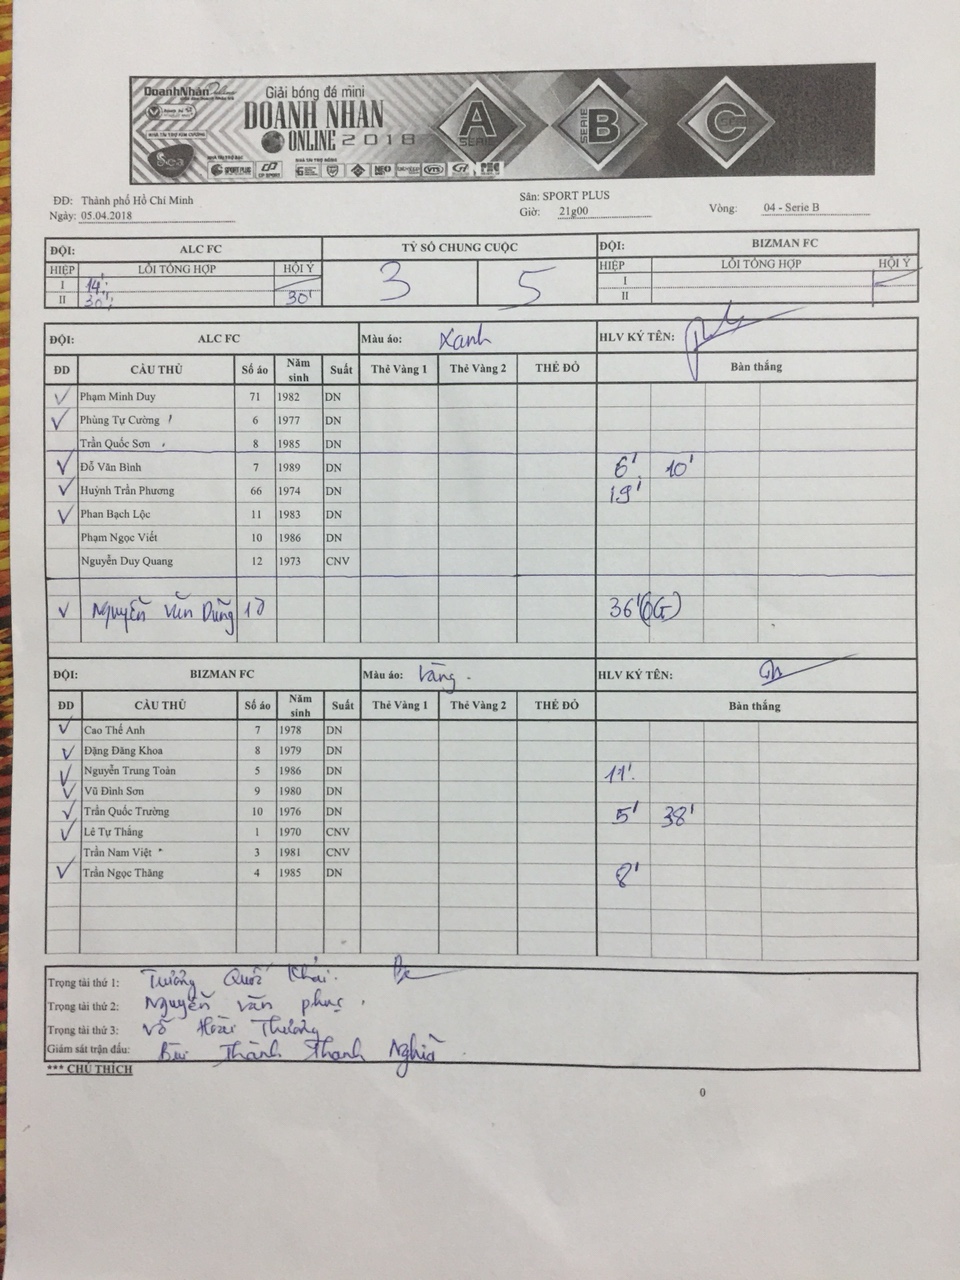 DoanhNhân Online
Giải bóng đá mini
DOANH NHÂN
ONLINE 2018
A SERIE
B SERIE
C
NHÀ TÀI TRỢ KIM CƯƠNG
Sea
SPORT PLUS
CP SPORT
NHÀ TÀI TRỢ ĐỒNG
ĐĐ: Thành phố Hồ Chí Minh Sân: SPORT PLUS
Ngày: 05.04.2018 Giờ: 21g00 Vòng: 04 - Serie B
ĐỘI: ALC FC TỶ SỐ CHUNG CUỘC ĐỘI: BIZMAN FC
HIỆP LỖI TỔNG HỢP HỘI Ý 3 5 HIỆP LỖI TỔNG HỢP HỘI Ý
I 14' I
II 30' 30' II
ĐỘI: ALC FC Màu áo: Xanh HLV KÝ TÊN:
ĐD CẦU THỦ Số áo Năm sinh Suất Thẻ Vàng 1 Thẻ Vàng 2 THẺ ĐỎ Bàn thắng
Phạm Minh Duy 71 1982 DN
Phùng Tự Cường 6 1977 DN
Trần Quốc Sơn 8 1985 DN
Đỗ Văn Bình 7 1989 DN 6' 10'
Huỳnh Trần Phương 66 1974 DN 19'
Phan Bạch Lộc 11 1983 DN
Phạm Ngọc Viết 10 1986 DN
Nguyễn Duy Quang 12 1973 CNV
Nguyễn Văn Dũng 10 36' (OG)
ĐỘI: BIZMAN FC Màu áo: Vàng. HLV KÝ TÊN:
ĐD CẦU THỦ Số áo Năm sinh Suất Thẻ Vàng 1 Thẻ Vàng 2 THẺ ĐỎ Bàn thắng
Cao Thế Anh 7 1978 DN
Đặng Đăng Khoa 8 1979 DN
Nguyễn Trung Toàn 5 1986 DN 11'
Vũ Đình Sơn 9 1980 DN
Trần Quốc Trường 10 1976 DN 5' 38'
Lê Tự Thắng 1 1970 CNV
Trần Nam Việt 3 1981 CNV
Trần Ngọc Thăng 4 1985 DN 8'
Trọng tài thứ 1: Trương Quốc Khải.
Trọng tài thứ 2: Nguyễn Văn Phục
Trọng tài thứ 3: Võ Hoài Thương
Giám sát trận đấu: Bùi Thành Thanh Nghĩa
*** CHÚ THÍCH
0